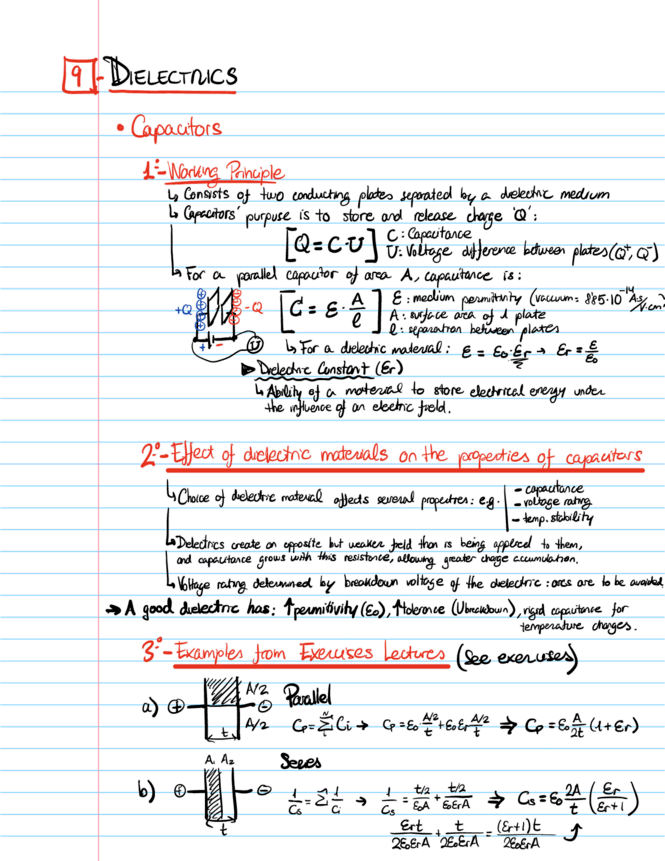 9 - DIELECTRICS
• Capacitors
1º- Working Principle
↳ Consists of two conducting plates separated by a dielectric medium
↳ Capacitors' purpuse is to store and release charge 'Q':
[Q = C·U] C: Capacitance
U: Voltage difference between plates (Q⁺, Q⁻)
↳ For a parallel capacitor of area A, capacitance is:
+Q -Q [C = ε · A/l] ε: medium permittivity (vacuum: 8'85·10⁻¹⁴ A·s/V·cm)
A: surface area of 1 plate
l: separation between plates
+ - U ↳ For a dielectric material: ε = ε₀·εr → εr = ε/ε₀
▶ Dielectric Constant (εr)
↳ Ability of a material to store electrical energy under
the influence of an electric field.
2º- Effect of dielectric materials on the properties of capacitors
↳ Choice of dielectric material affects several properties: e.g.
- capacitance
- voltage rating
- temp. stability
↳ Dielectrics create an opposite but weaker field than is being applied to them,
and capacitance grows with this resistance, allowing greater charge accumulation.
↳ Voltage rating determined by breakdown voltage of the dielectric: arcs are to be avoided
→ A good dielectric has: ↑permitivity (ε₀), ↑tolerance (Ubreakdown), rigid capacitance for
temperature changes.
3º- Examples from Exercises Lectures (See exercises)
a) + - A/2 A/2 t Parallel
Cp = Σᴺᵢ Ci → Cp = ε₀·(A/2)/t + ε₀εr (A/2)/t ⇒ Cp = ε₀ A/2t (1+εr)
b) + - A₁ A₂ t Series
1/Cs = Σ 1/Ci → 1/Cs = (t/2)/ε₀A + (t/2)/ε₀εrA ⇒ Cs = ε₀ 2A/t (εr/(εr+1))
εrt/2ε₀εrA + t/2ε₀εrA = (εr+1)t/2ε₀εrA ⤴